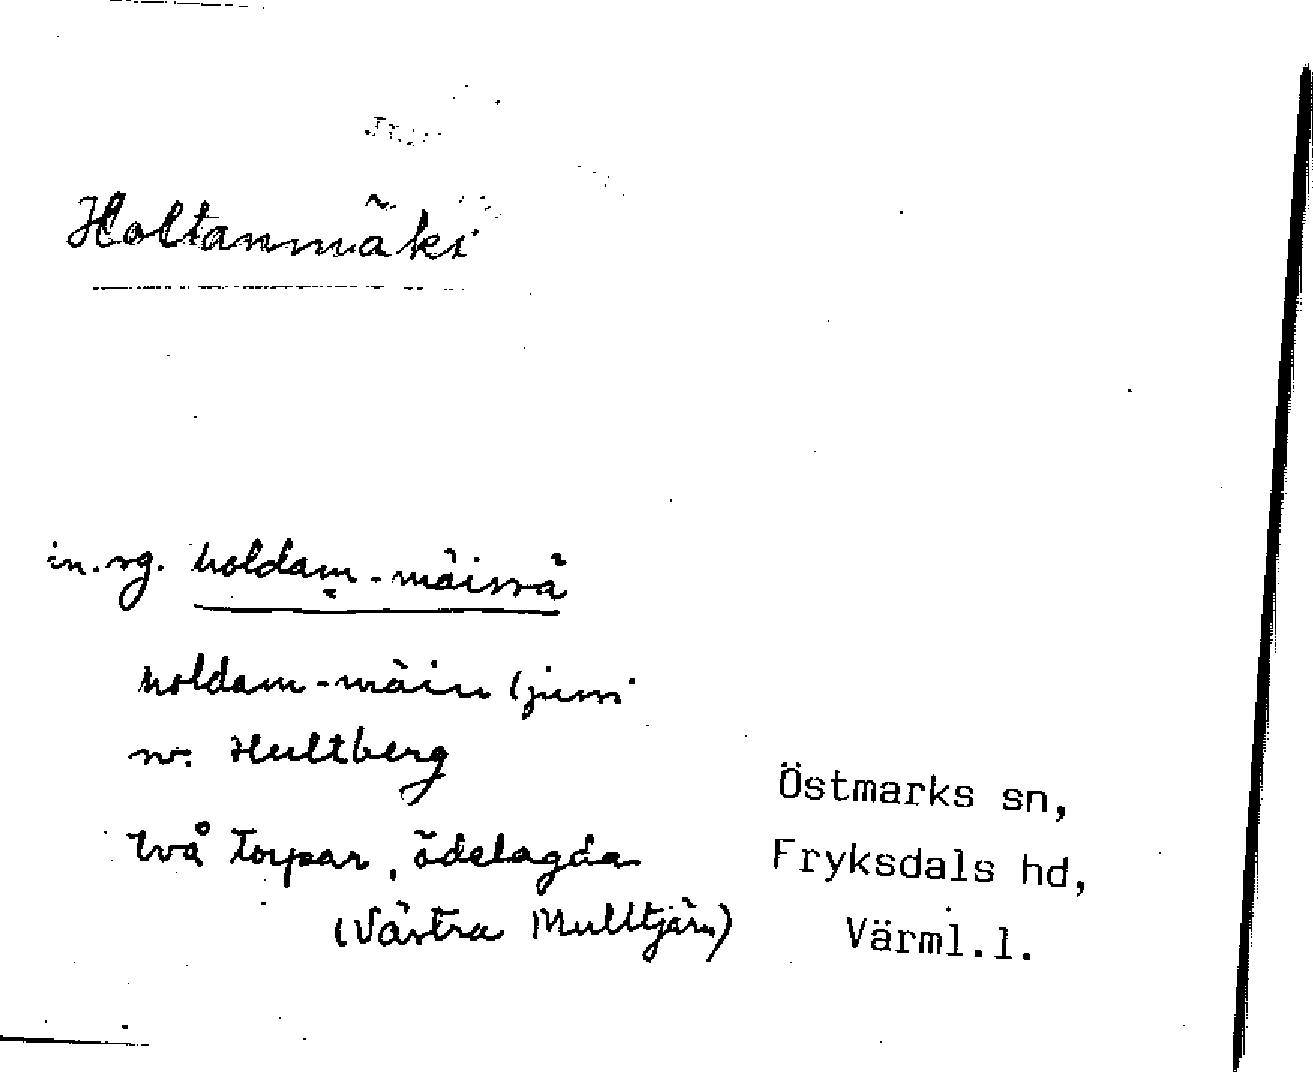 Holtanmäki
in. sg. holdam-mäissä
holdam-mäin (juuri
sv. Hultberg
två torpar, ödelagda
(Västra Mulltjärn)
Östmarks sn,
Fryksdals hd,
Värml.l.